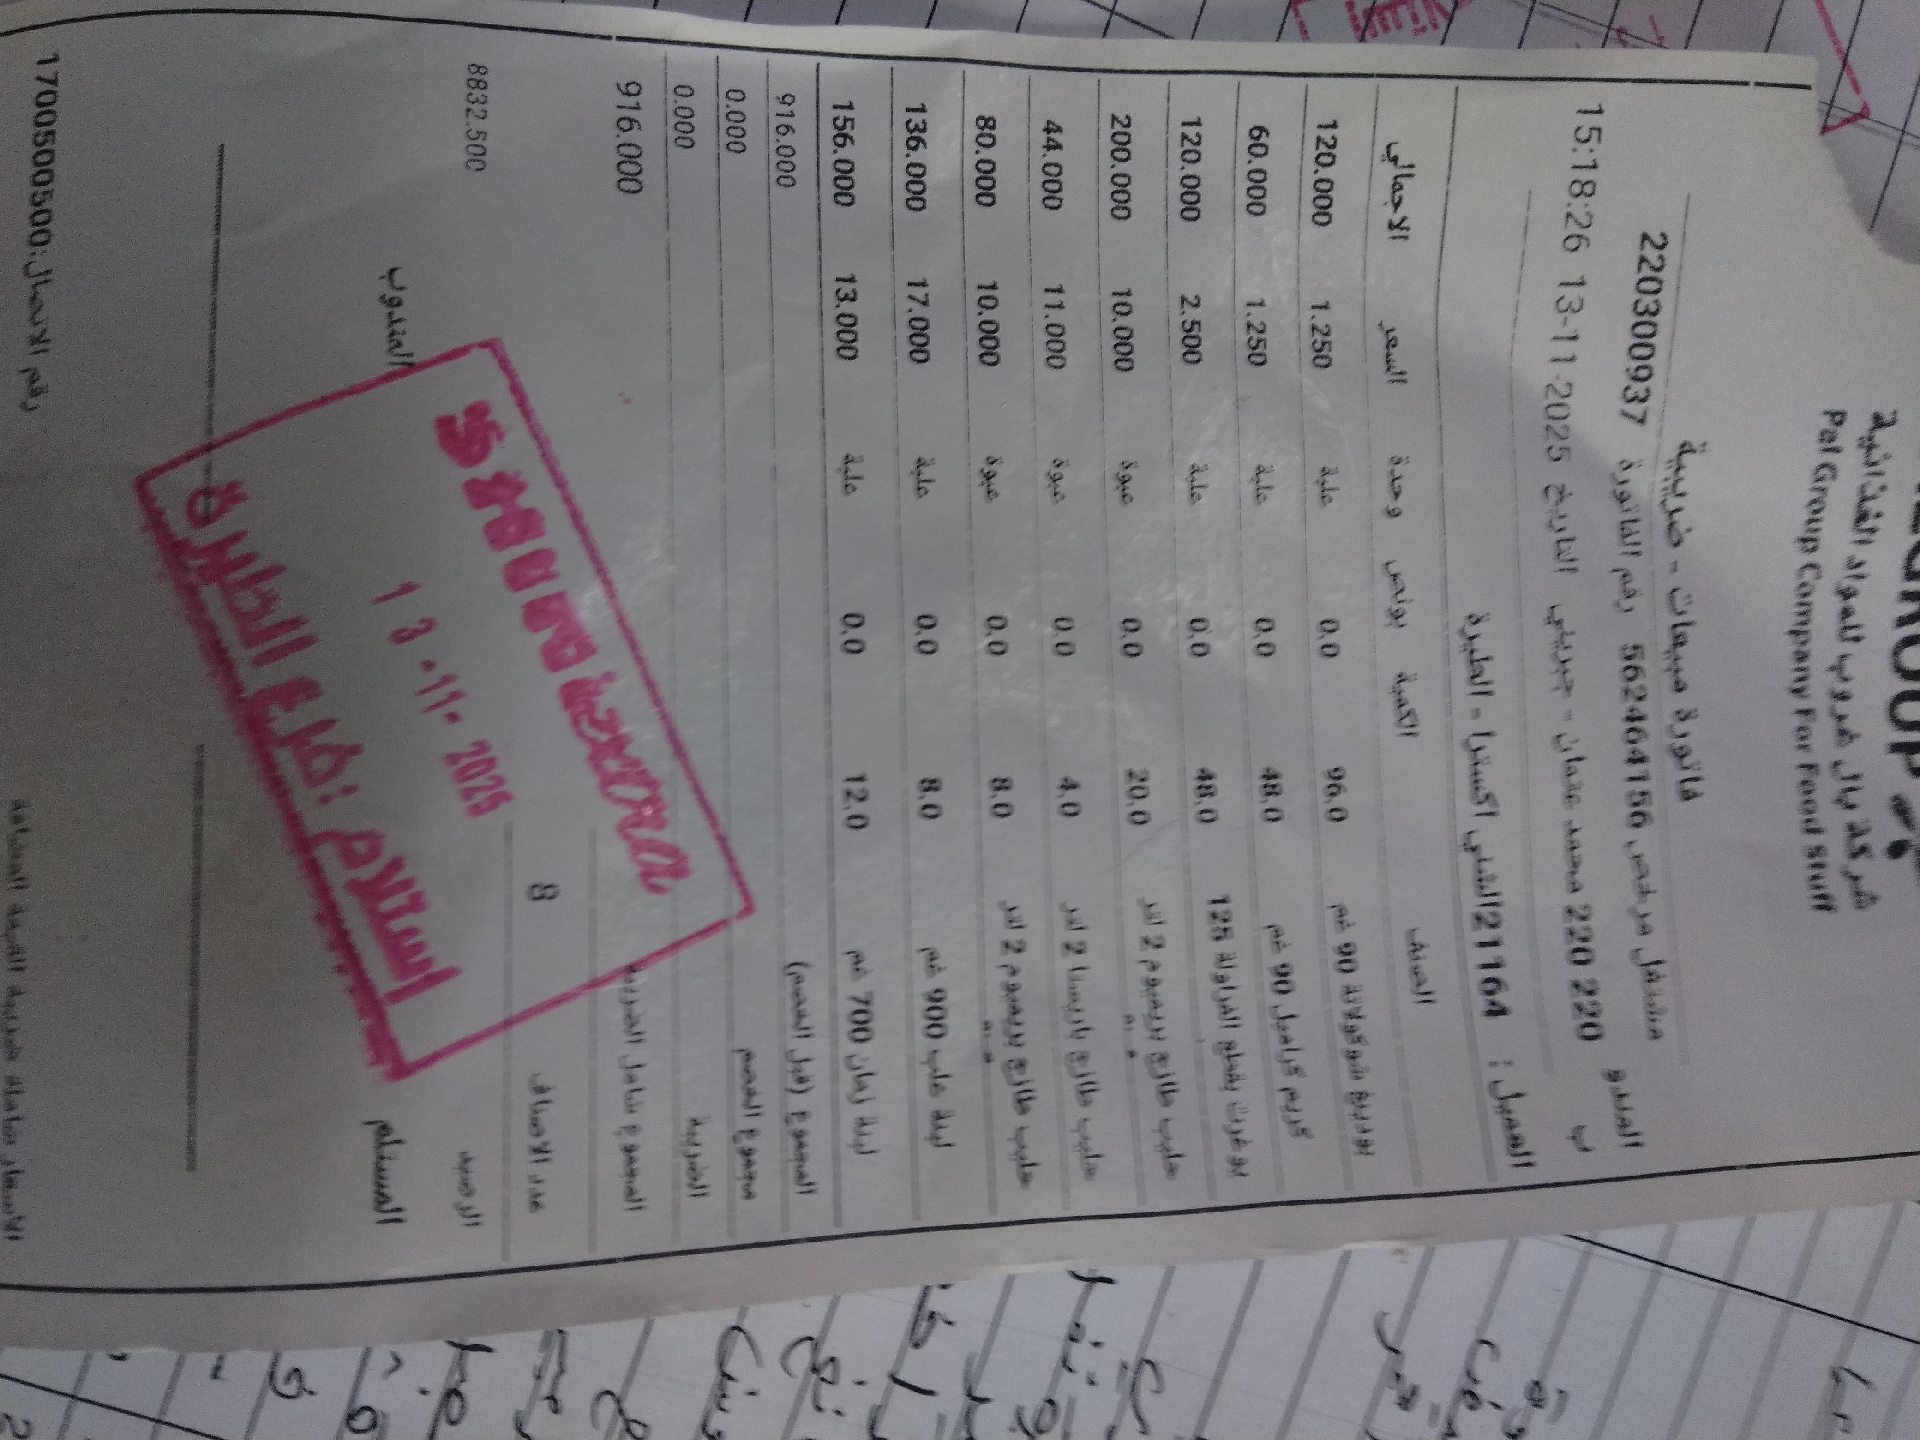 شركة بال غروب للمواد الغذائية
Pal Group Company For Food Stuff
فاتورة مبيعات - ضريبية
مشتغل مرخص 562464156 رقم الفاتورة 220300937
المندوب 220 220 محمد عثمان - جبريني التاريخ 2025-11-13 15:18:26
العميل : 21164 الشني اكسترا - الطيرة
الصنف الكمية بونص وحدة السعر الاجمالي
بودينغ شوكولاتة 90 غم 96.0 0.0 علبة 1.250 120.000
كريم كراميل 90 غم 48.0 0.0 علبة 1.250 60.000
يوغرت بقطع الفراولة 125 48.0 0.0 علبة 2.500 120.000
حليب طازج بريميوم 2 لتر 20.0 0.0 عبوة 10.000 200.000
حليب طازج باريستا 2 لتر 4.0 0.0 عبوة 11.000 44.000
حليب طازج بريميوم 2 لتر 8.0 0.0 عبوة 10.000 80.000
لبنة علب 900 غم 8.0 0.0 علبة 17.000 136.000
لبنة زمان 700 غم 12.0 0.0 علبة 13.000 156.000
المجموع (قبل الخصم) 916.000
مجموع الخصم 0.000
الضريبة 0.000
المجموع شامل الضريبة 916.000
عدد الاصناف 8
الرصيد 8832.500
المستلم المندوب
13 -11- 2025
إستلام : فرع الطيرة
الاسعار شاملة ضريبة القيمة المضافة
رقم الاتصال:1700500500